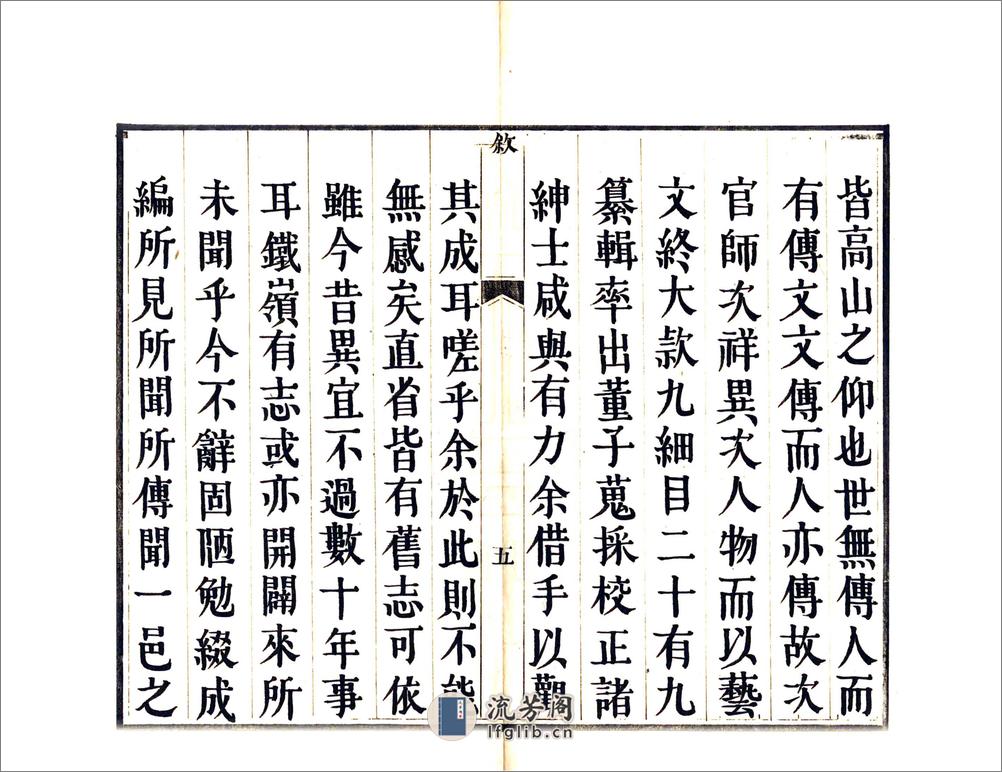 皆高山之仰也世無傳人而
有傳文文傳而人亦傳故次
官師次祥異次人物而以藝
文終大款九細目二十有九
纂輯率出董子蒐採校正諸
紳士咸與有力余借手以觀
敘
五
其成耳嗟乎余於此則不能
無感矣直省皆有舊志可依
雖今昔異宜不過數十年事
耳鐵嶺有志或亦開闢來所
未聞乎今不辭固陋勉綴成
編所見所聞所傳聞一邑之
流芳阁
lfglib.cn